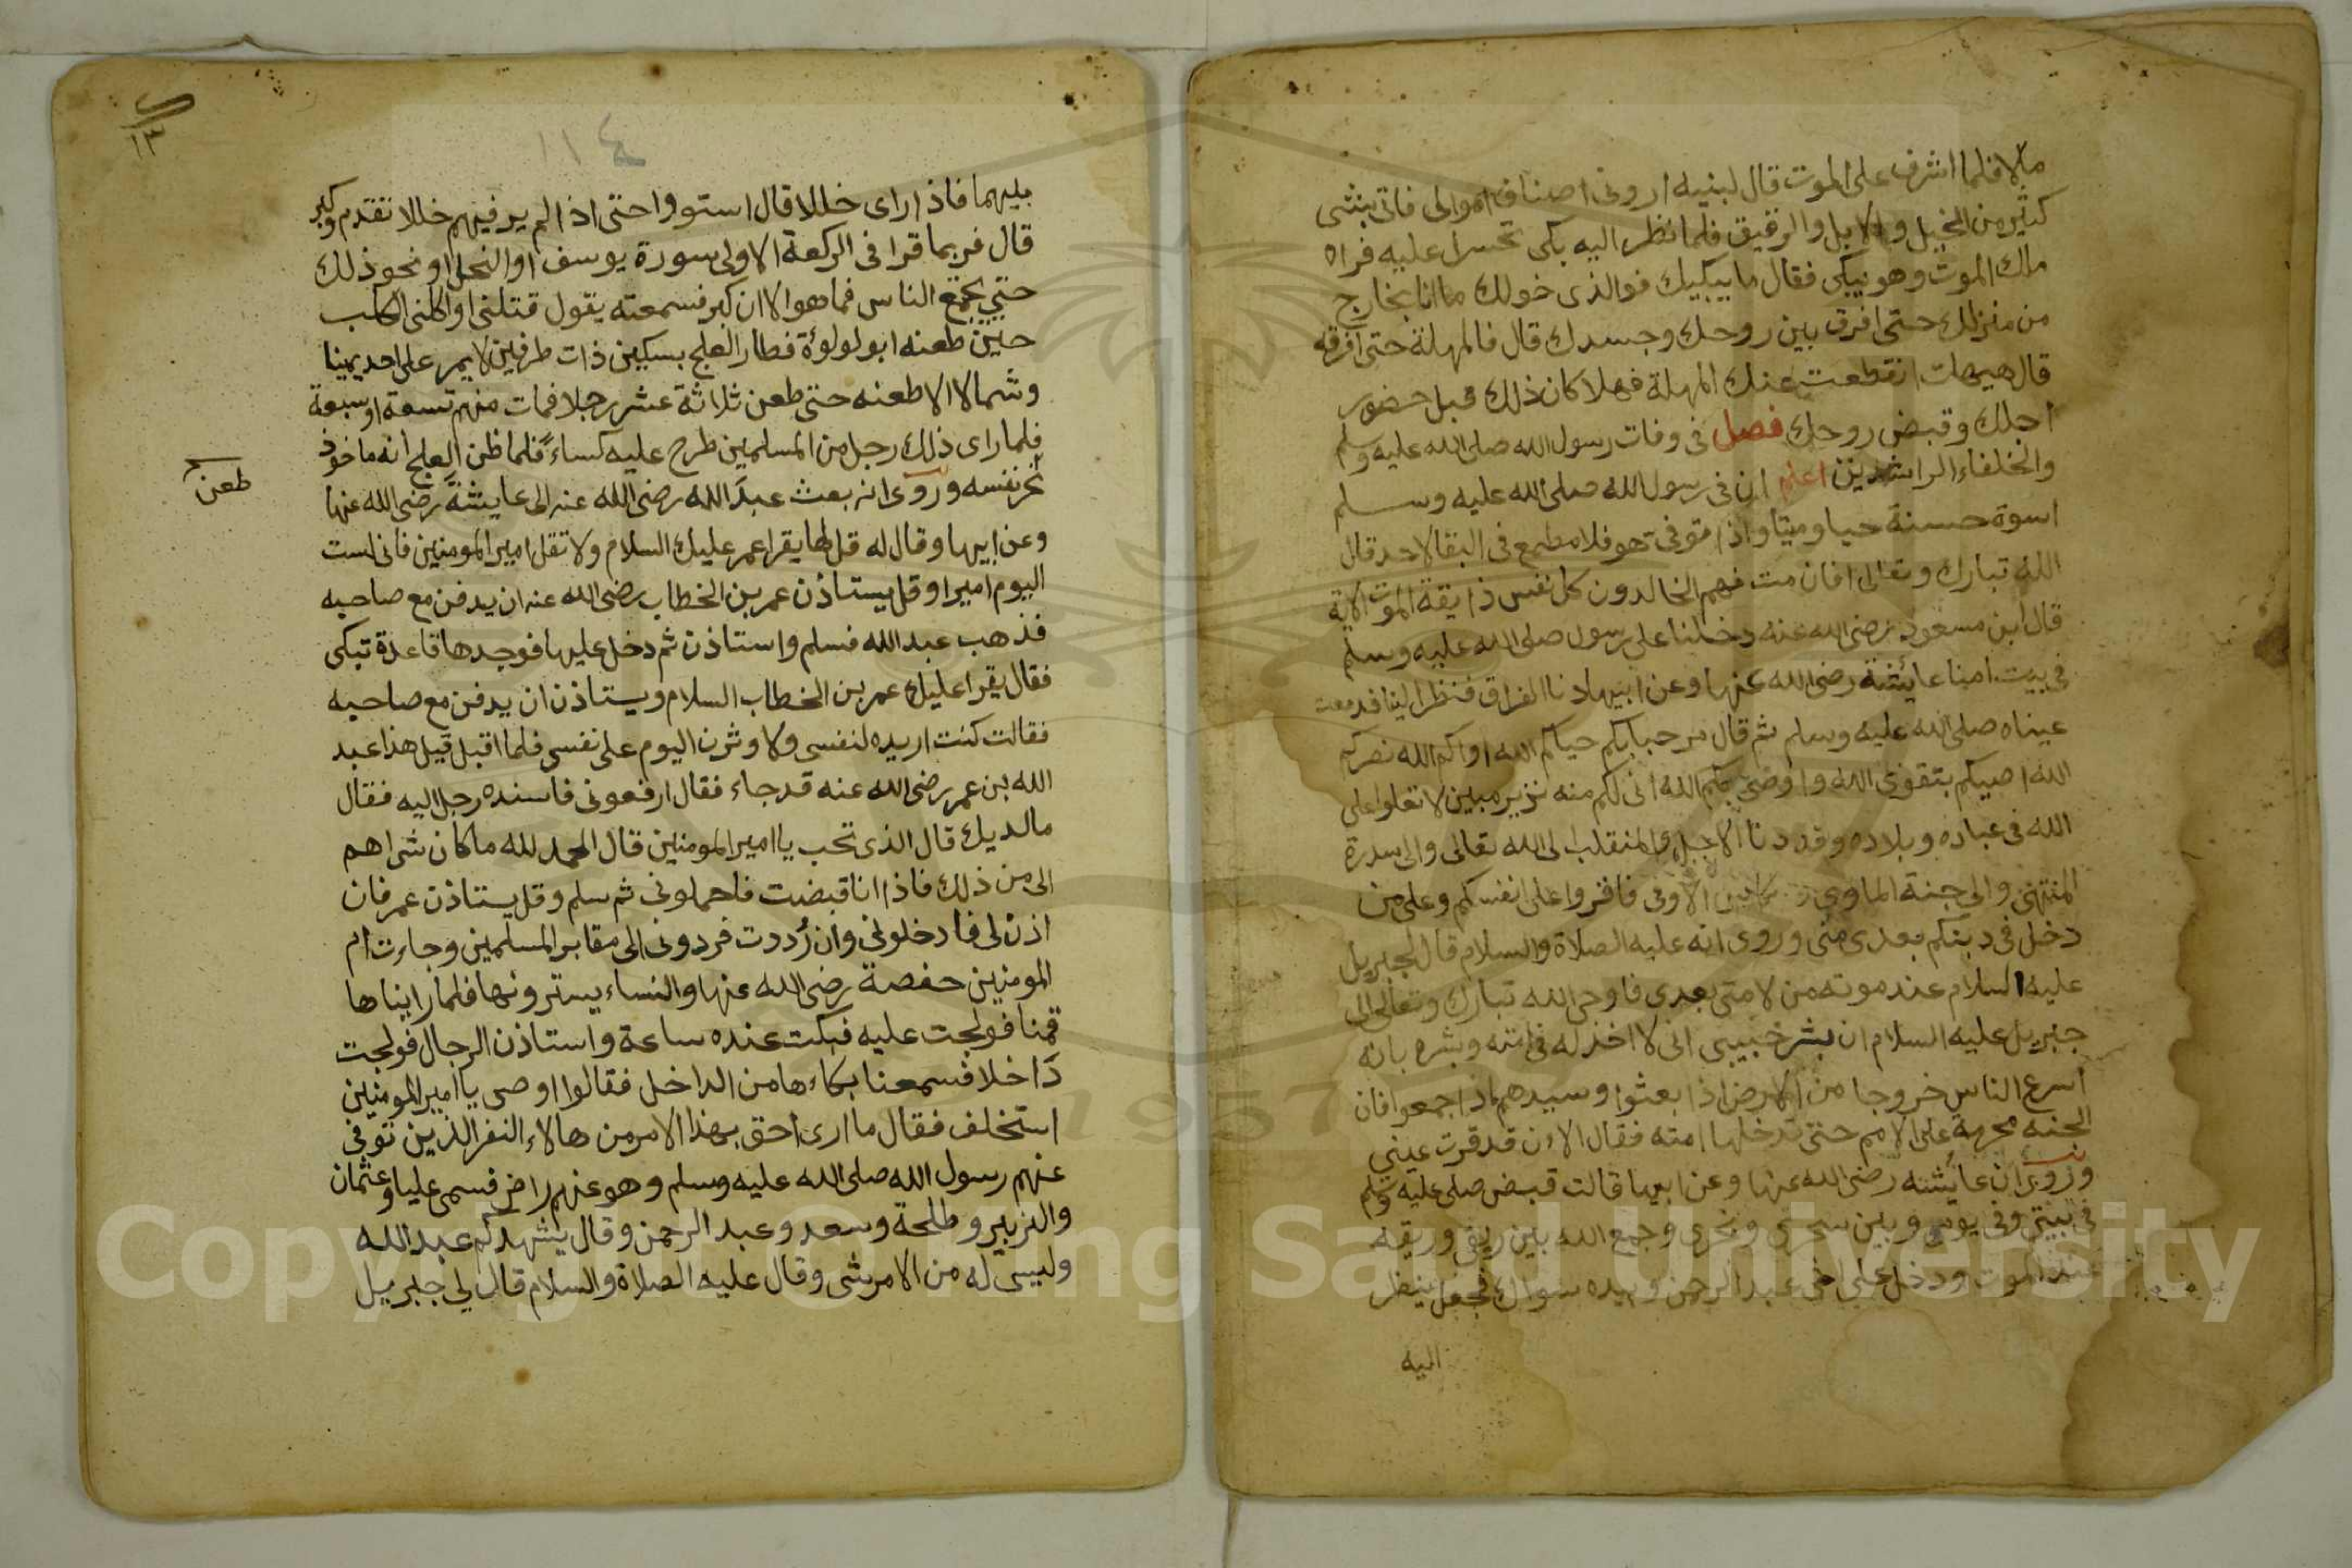 مالا فلما اشرف على الموت قال لبنيه اروني اصناف اموالى فاتى بشى
كثير من الخيل والابل والرقيق فلما نظر اليه بكى تحسرا عليه فراه
ملك الموت وهو يبكى فقال ما يبكيك فوالذى خولك ما انا بخارج
من منزلك حتى افرق بين روحك وجسدك قال فالمهلة حتى افرقه
قال هيهات انقطعت عنك المهلة فهلا كان ذلك قبل حضور
اجلك وقبض روحك فصل فى وفات رسول الله صلى الله عليه وسلم
والخلفاء الراشدين اعلم ان فى رسول الله صلى الله عليه وسلم
اسوة حسنة حيا وميتا واذا توفى هو فلا مطمع فى البقا لاحد قال
الله تبارك وتعالى افان مت فهم الخالدون كل نفس ذايقة الموت الاية
قال ابن مسعود رضى الله عنه دخلنا على رسول صلى الله عليه وسلم
فى بيت امنا عايشة رضى الله عنها وعن ابيها دنا الفراق فنظر الينا فدمعت
عيناه صلى الله عليه وسلم ثم قال مرحبا بكم حياكم الله اواكم الله نصركم
الله اصيكم بتقوى الله واوصى بكم الله انى لكم منه نزير مبين لا تعلوا على
الله فى عباده وبلاده وقد دنا الاجل والمنقلب الى الله تعالى والى سدرة
المنتهى والى جنة الماوى الاوفى فاقروا على انفسكم وعلى من
دخل فى دينكم بعدى منى وروى انه عليه الصلاة والسلام قال لجبريل
عليه السلام عند موته من لامتى بعدى فاوحى الله تبارك وتعالى الى
جبريل عليه السلام ان بشر حبيبى انى لا اخذله فى امته وبشره بانه
اسرع الناس خروجا من الارض اذا بعثوا وسيدهم اذا جمعوا فان
الجنه محرمة على الامم حتى تدخلها امته فقال الان قد قرت عينى
وروى ان عايشه رضى الله عنها وعن ابيها قالت قبض صلى عليه وسلم
فى بيتى وفى يومى وبين سحرى ونحرى وجمع الله بين ريقى وريقه
عند الموت ودخل على اخى عبد الرحمن وبيده سواك فجعل ينظر
اليه
١١٤
١٣
يليهما فاذا راى خللا قال استووا حتى اذا لم ير فيهم خللا تقدم وكبر
قال فربما قرا فى الركعة الاولى سورة يوسف او النحل او نحو ذلك
حتى يجتمع الناس فما هو الا ان كبر فسمعته يقول قتلنى او اكلنى الكلب
حين طعنه ابو لولوة فطار العلج بسكين ذات طرفين لا يمر على احد يمينا
وشمالا الا طعنه حتى طعن ثلاثة عشر رجلا فمات منهم تسعة او سبعة
فلما راى ذلك رجل من المسلمين طرح عليه كساء فلما ظن العلج انه ماخوذ
نحر نفسه وروى انه بعث عبد الله رضى الله عنه الى عايشة رضى الله عنها
طعن
وعن ابيها وقال له قل لها يقرا عمر عليك السلام ولا تقل امير المومنين فانى لست
اليوم اميرا وقل يستاذن عمر بن الخطاب رضى الله عنه ان يدفن مع صاحبه
فذهب عبد الله فسلم واستاذن ثم دخل عليها فوجدها قاعدة تبكى
فقال يقرا عليك عمر بن الخطاب السلام ويستاذن ان يدفن مع صاحبه
فقالت كنت اريده لنفسى ولاوثرن اليوم على نفسى فلما اقبل قيل هذا عبد
الله بن عمر رضى الله عنه قد جاء فقال ارفعونى فاسنده رجل اليه فقال
ما لديك قال الذى تحب يا امير المومنين قال الحمد لله ما كان شى اهم
الى من ذلك فاذا انا قبضت فاحملونى ثم سلم وقل يستاذن عمر فان
اذن لى فادخلونى وان رددت فردونى الى مقابر المسلمين وجاءت ام
المومنين حفصة رضى الله عنها والنساء يسترونها فلما رايناها
قمنا فولجت عليه فبكت عنده ساعة واستاذن الرجال فولجت
داخلا فسمعنا بكاءها من الداخل فقالوا اوصى يا امير المومنين
استخلف فقال ما ارى احق بهذا الامر من هالاء النفر الذين توفى
عنهم رسول الله صلى الله عليه وسلم وهو عنهم راض فسمى عليا وعثمان
والزبير وطلحة وسعد وعبد الرحمن وقال يشهدكم عبد الله
وليس له من الامر شى وقال عليه الصلاة والسلام قال لى جبريل
Copyright © King Saud University
1957